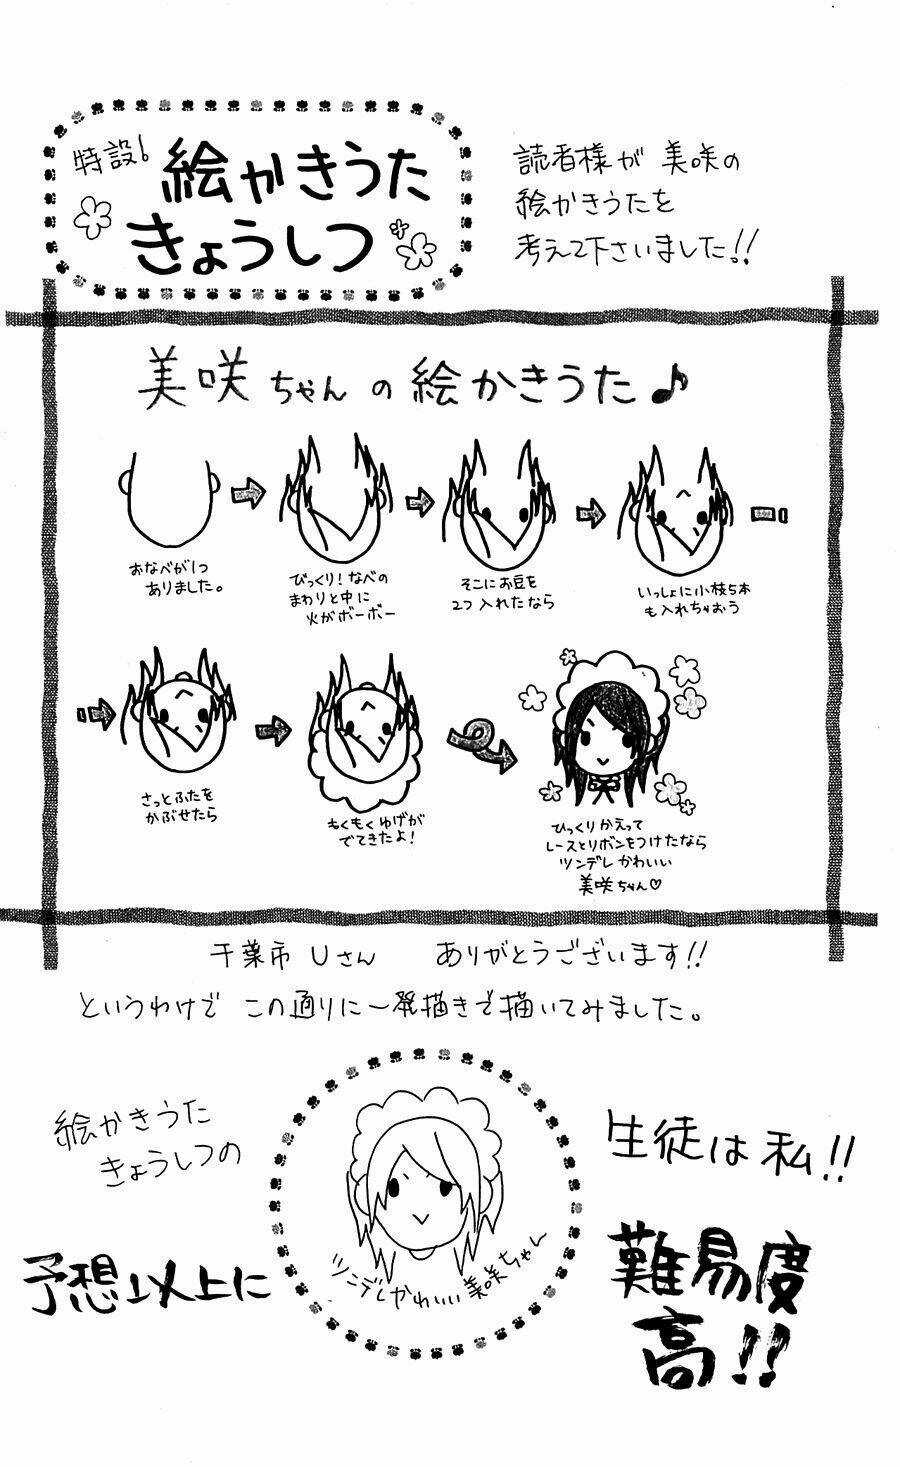 特設!
絵かきうた
きょうしつ
読者様が 美咲の
絵かきうたを
考えて下さいました!!
美咲ちゃんの絵かきうた♪
おなべが1つ
ありました。
びっくり!なべの
まわりと中に
火がボーボー
そこにお豆を
2つ入れたなら
いっしょに小枝5本
も入れちゃおう
さっとふたを
かぶせたら
もくもくゆげが
でてきたよ!
ひっくりかえって
レースとリボンをつけたなら
ツンデレかわいい
美咲ちゃん♡
千葉市 Uさん ありがとうございます!!
というわけで この通りに一発描きで描いてみました。
絵かきうた
きょうしつの
生徒は私!!
ツンデレかわいい美咲ちゃん
予想以上に
難易度
高!!